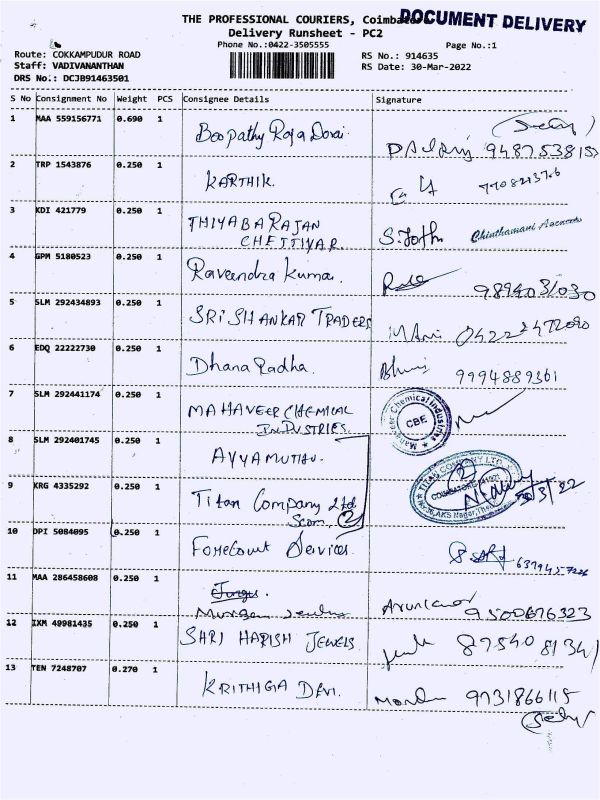 THE PROFESSIONAL COURIERS, Coimbatore
DOCUMENT DELIVERY
Delivery Runsheet - PC2
Phone No.:0422-3505555
Page No.:1
Route: COKKAMPUDUR ROAD
RS No.: 914635
Staff: VADIVANANTHAN
RS Date: 30-Mar-2022
DRS No.: DCJB91463501
S No Consignment No Weight PCS Consignee Details Signature
1 MAA 559156771 0.690 1 Boopathy Raja Dorai
2 TRP 1543876 0.250 1 KARTHIK.
3 KDI 421779 0.250 1 THIYABARAJAN
CHETTIYAR. Chinthamani
4 GPM 5180523 0.250 1 Raveendra Kumar. 9894031030
5 SLM 292434893 0.250 1 SRI SHANKAR TRADERS Mani 0422 2472090
6 EDQ 22222730 0.250 1 Dhana Radha. 9994889361
7 SLM 292441174 0.250 1 MAHAVEER CHEMICAL
INDUSTRIES. Mahaveer Chemical Industries CBE
8 SLM 292401745 0.250 1 AYYAMUTHU.
9 KRG 4335292 0.250 1 Titan Company Ltd
2 TITAN COMPANY LTD COIMBATORE 30/3/22
10 DPI 5084095 0.250 1 Forecourt Services.
11 MAA 286458608 0.250 1
Murugan Arunkumar 9500676323
12 IXM 49981435 0.250 1 SHRI HARISH JEWELS 87540 81341
13 TEN 7248707 0.270 1 KRITHIGA DEVI. 9731866115